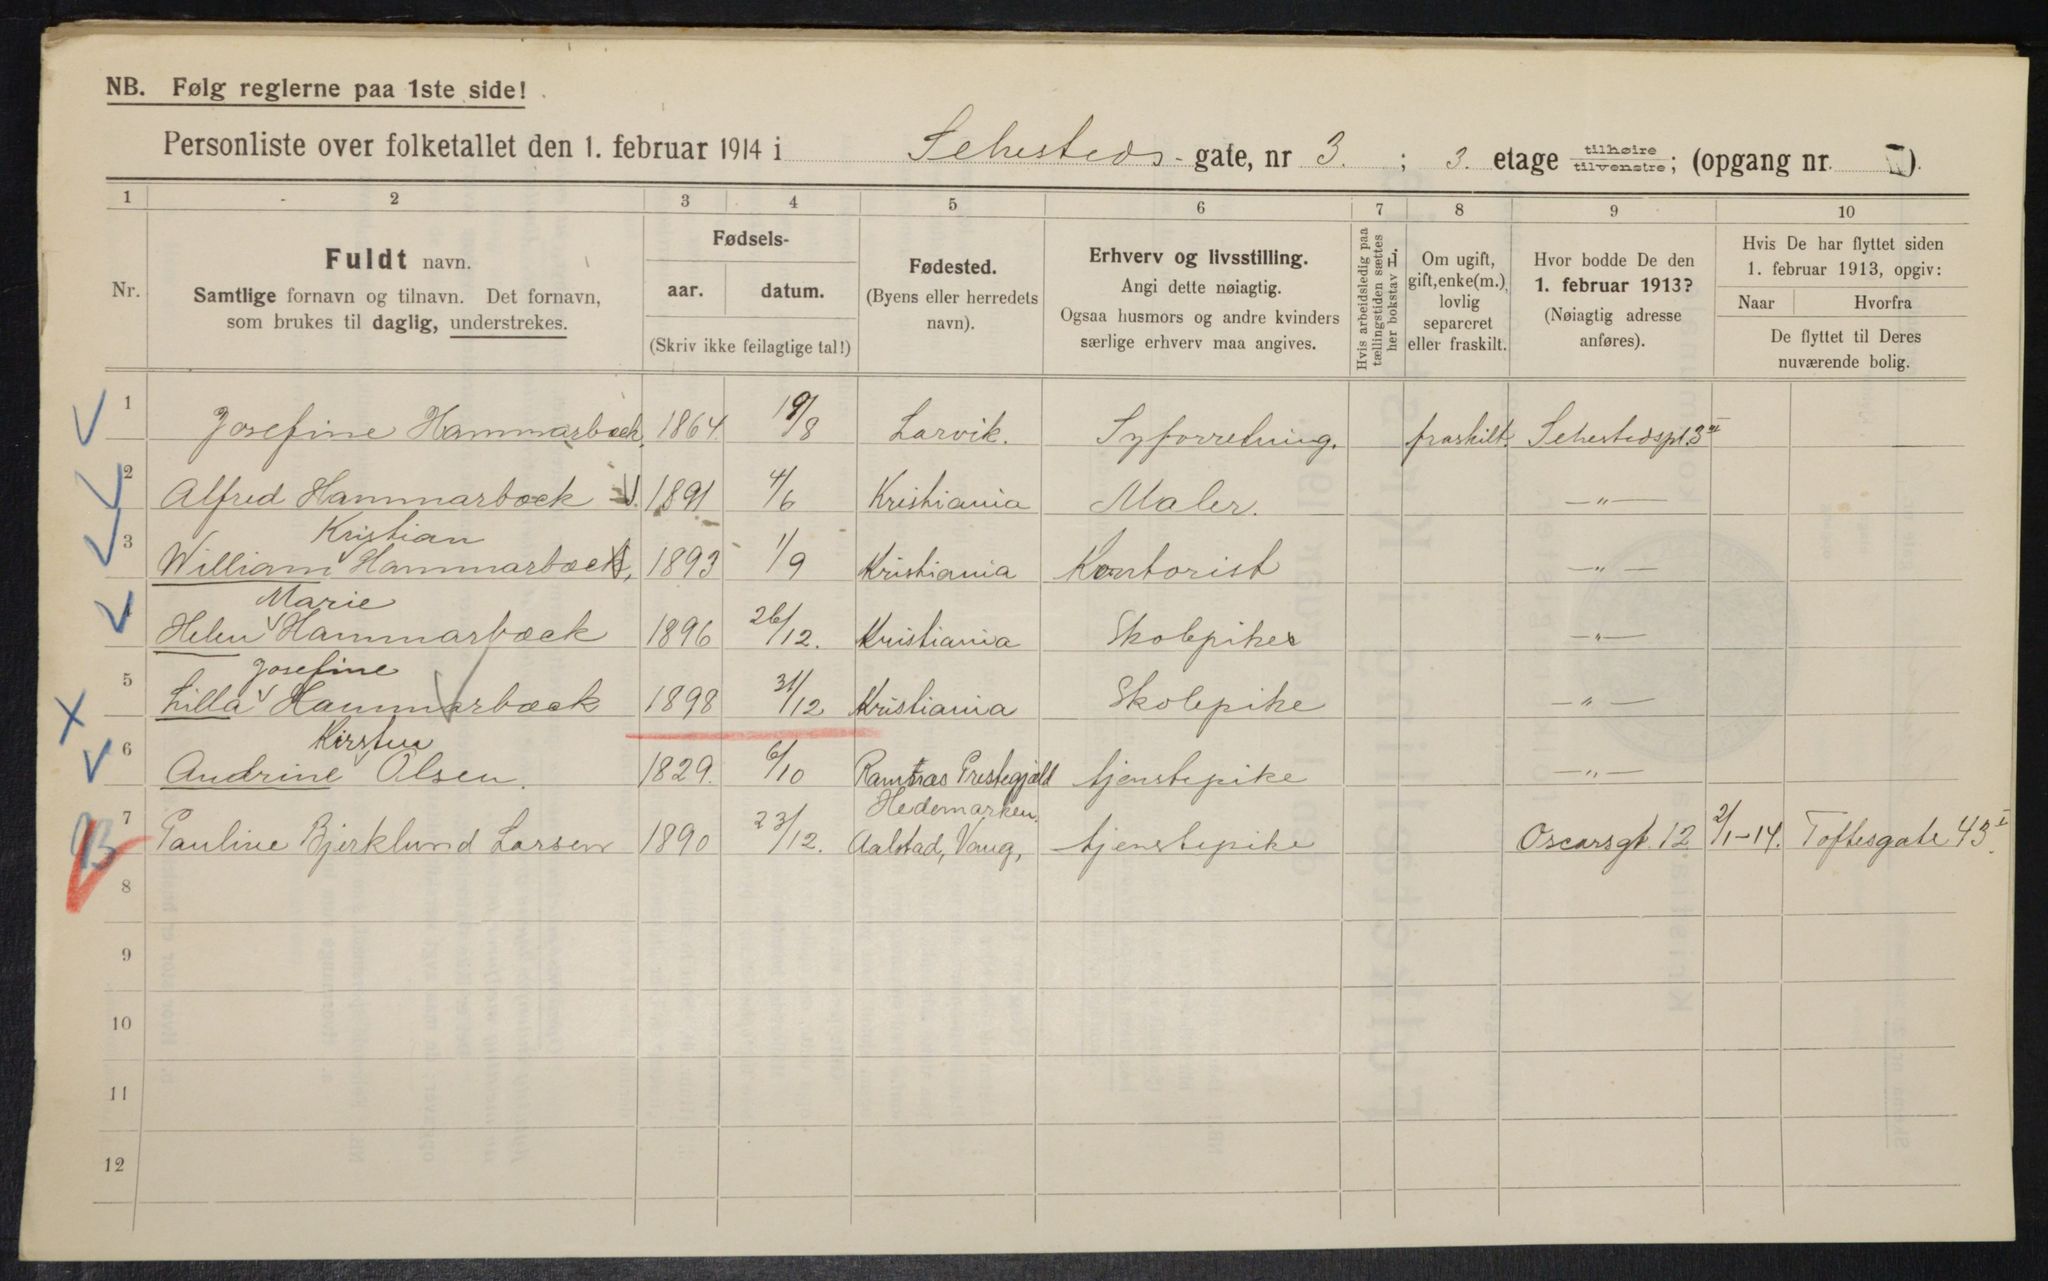 NB. Følg reglerne paa 1ste side!
Personliste over folketallet den 1. februar 1914 i Sehesteds - gate, nr 3. ; 3. etage tilhøire tilvenstre; (opgang nr. ).
1 2 3 4 5 6 7 8 9 10
Nr.
Fuldt navn.
Samtlige fornavn og tilnavn. Det fornavn,
som brukes til daglig, understrekes.
Fødsels-
aar. datum.
(Skriv ikke feilagtige tal!)
Fødested.
(Byens eller herredets
navn).
Erhverv og livsstilling.
Angi dette nøiagtig.
Ogsaa husmors og andre kvinders
særlige erhverv maa angives.
Hvis arbeidsledig paa
tællingstiden sættes
her bokstav L.
Om ugift,
gift, enke(m.),
lovlig
separeret
eller fraskilt.
Hvor bodde De den
1. februar 1913?
(Nøiagtig adresse
anføres).
Hvis De har flyttet siden
1. februar 1913, opgiv:
Naar Hvorfra
De flyttet til Deres
nuværende bolig.
1 Josefine Hammarbæck, 1864. 19/8 Larvik. Syforretning. fraskilt. Sehestedspl. 3 III
2 Alfred Hammarbæck 1891 4/6 Kristiania Maler. —"—
Kristian
3 William Hammarbæck, 1893 1/9 Kristiania Kontorist —"—
Marie
4 Helen Hammarbæck 1896 26/12. Kristiania Skolepike —"—
Josefine
5 Lilla Hammarbæck 1898 31/12 Kristiania Skolepike —"—
Kirstine
6 Andrine Olsen. 1829. 6/10 Ramnæs Prestegjæld tjenstepike —"—
Hedemarken.
7 Pauline Bjerklund Larsen 1890 23/12. Aalstad, Vang, tjenstepike Oscarsgt. 12 2/1-14. Toftesgate 43 I
8
9
10
11
12